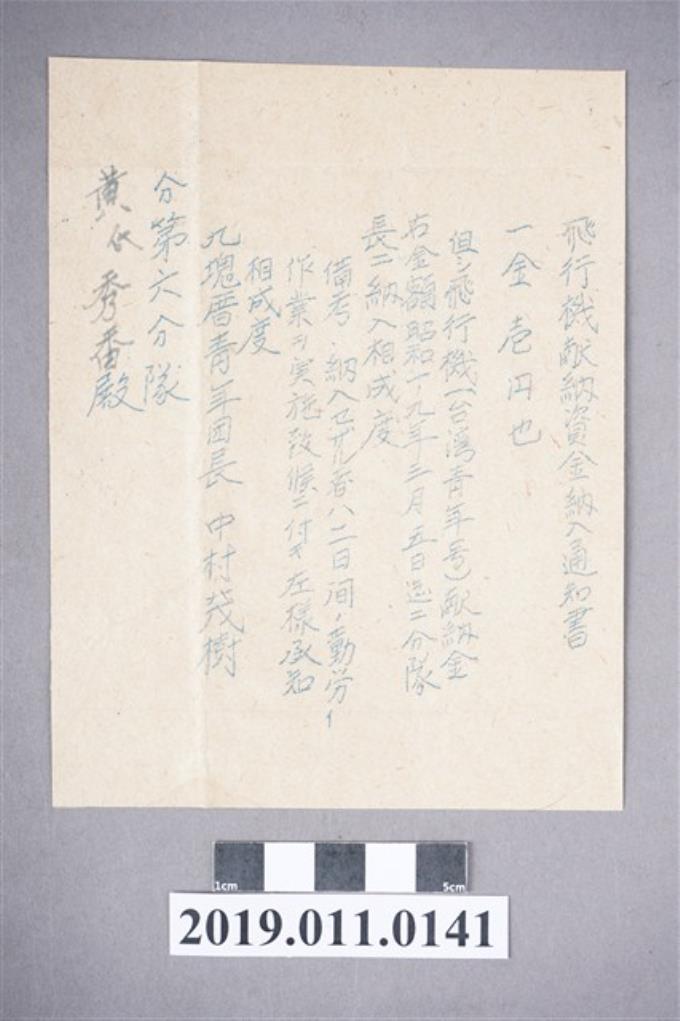 飛行機献納資金納入通知書
一金壱円也
但シ飛行機(台湾青年号)献納金
右金額昭和一九年二月五日迄ニ分隊
長ニ納入相成度
備考、納入セザル者ハ二日間ノ勤労
作業ヲ実施致候ニ付キ左様承知
相成度
九塊厝青年団長 中村茂樹
分第六分隊
黄氏秀番殿
1cm
5cm
2019.011.0141